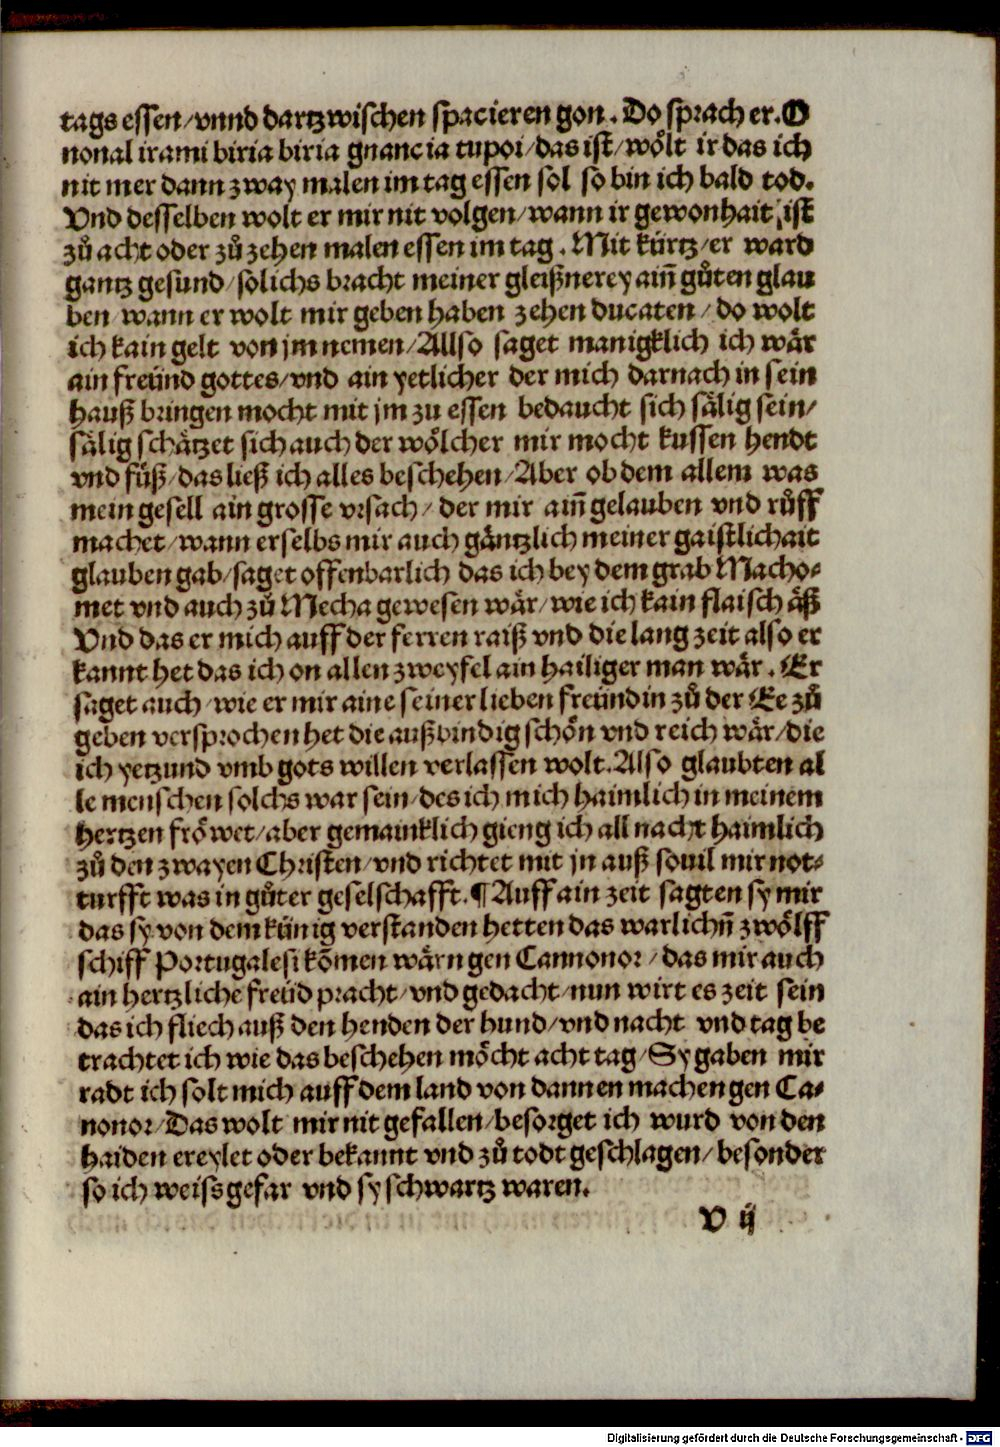 tags essen/vnnd dartzwischen spacieren gon. Do sprach er. O
nonal irami biria biria gnancia tupoi/das ist/wölt ir das ich
nit mer dann zway malen im tag essen sol so bin ich bald tod.
Vnd desselben wolt er mir nit volgen/wann ir gewonhait ist
zů acht oder zů zehen malen essen im tag. Mit kürtz/er ward
gantz gesund/solichs bracht meiner gleißnerey ain̄ gůten glau
ben/wann er wolt mir geben haben zehen ducaten/do wolt
ich kain gelt von jm nemen/Allso saget manigklich ich wär
ain freünd gottes/vnd ain yetlicher der mich darnach in sein
hauß bringen mocht mit jm zu essen bedaucht sich sälig sein/
sälig schätzet sich auch der wölcher mir mocht kussen hendt
vnd füß/das ließ ich alles beschehen/Aber ob dem allem was
mein gesell ain grosse vrsach/der mir ain̄ gelauben vnd růff
machet/wann er selbs mir auch gäntzlich meiner gaistlichait
glauben gab/saget offenbarlich das ich bey dem grab Macho-
met vnd auch zů Mecha gewesen wär/wie ich kain flaisch äß
Vnd das er mich auff der ferren raiß vnd die lang zeit also er
kannt het das ich on allen zweyfel ain hailiger man wär. Er
saget auch/wie er mir aine seiner lieben freündin zů der Ee zů
geben versprochen het die außbindig schön vnd reich wär/die
ich yetzund vmb gots willen verlassen wolt. Also glaubten al
le menschen solchs war sein/des ich mich haimlich in meinem
hertzen fröwet/aber gemainklich gieng ich all nacht haimlich
zů den zwayen Christen/vnd richtet mit jn auß souil mir not-
turfft was in gůter geselschafft. ¶ Auff ain zeit sagten sy mir
das sy von dem künig verstanden hetten das warlichn̄ zwölff
schiff Portugalesi kōmen wärn gen Cannonor/das mir auch
ain hertzliche freüd pracht/vnd gedacht/nun wirt es zeit sein
das ich fliech auß den henden der hund/vnd nacht vnd tag be
trachtet ich wie das beschehen möcht acht tag/Sy gaben mir
radt ich solt mich auff dem land von dannen machen gen Ca-
nonor/Das wolt mir nit gefallen/besorget ich wurd von den
haiden ereylet oder bekannt vnd zů todt geschlagen/besonder
so ich weiss gefar vnd sy schwartz waren.
V ij
Digitalisierung gefördert durch die Deutsche Forschungsgemeinschaft - DFG